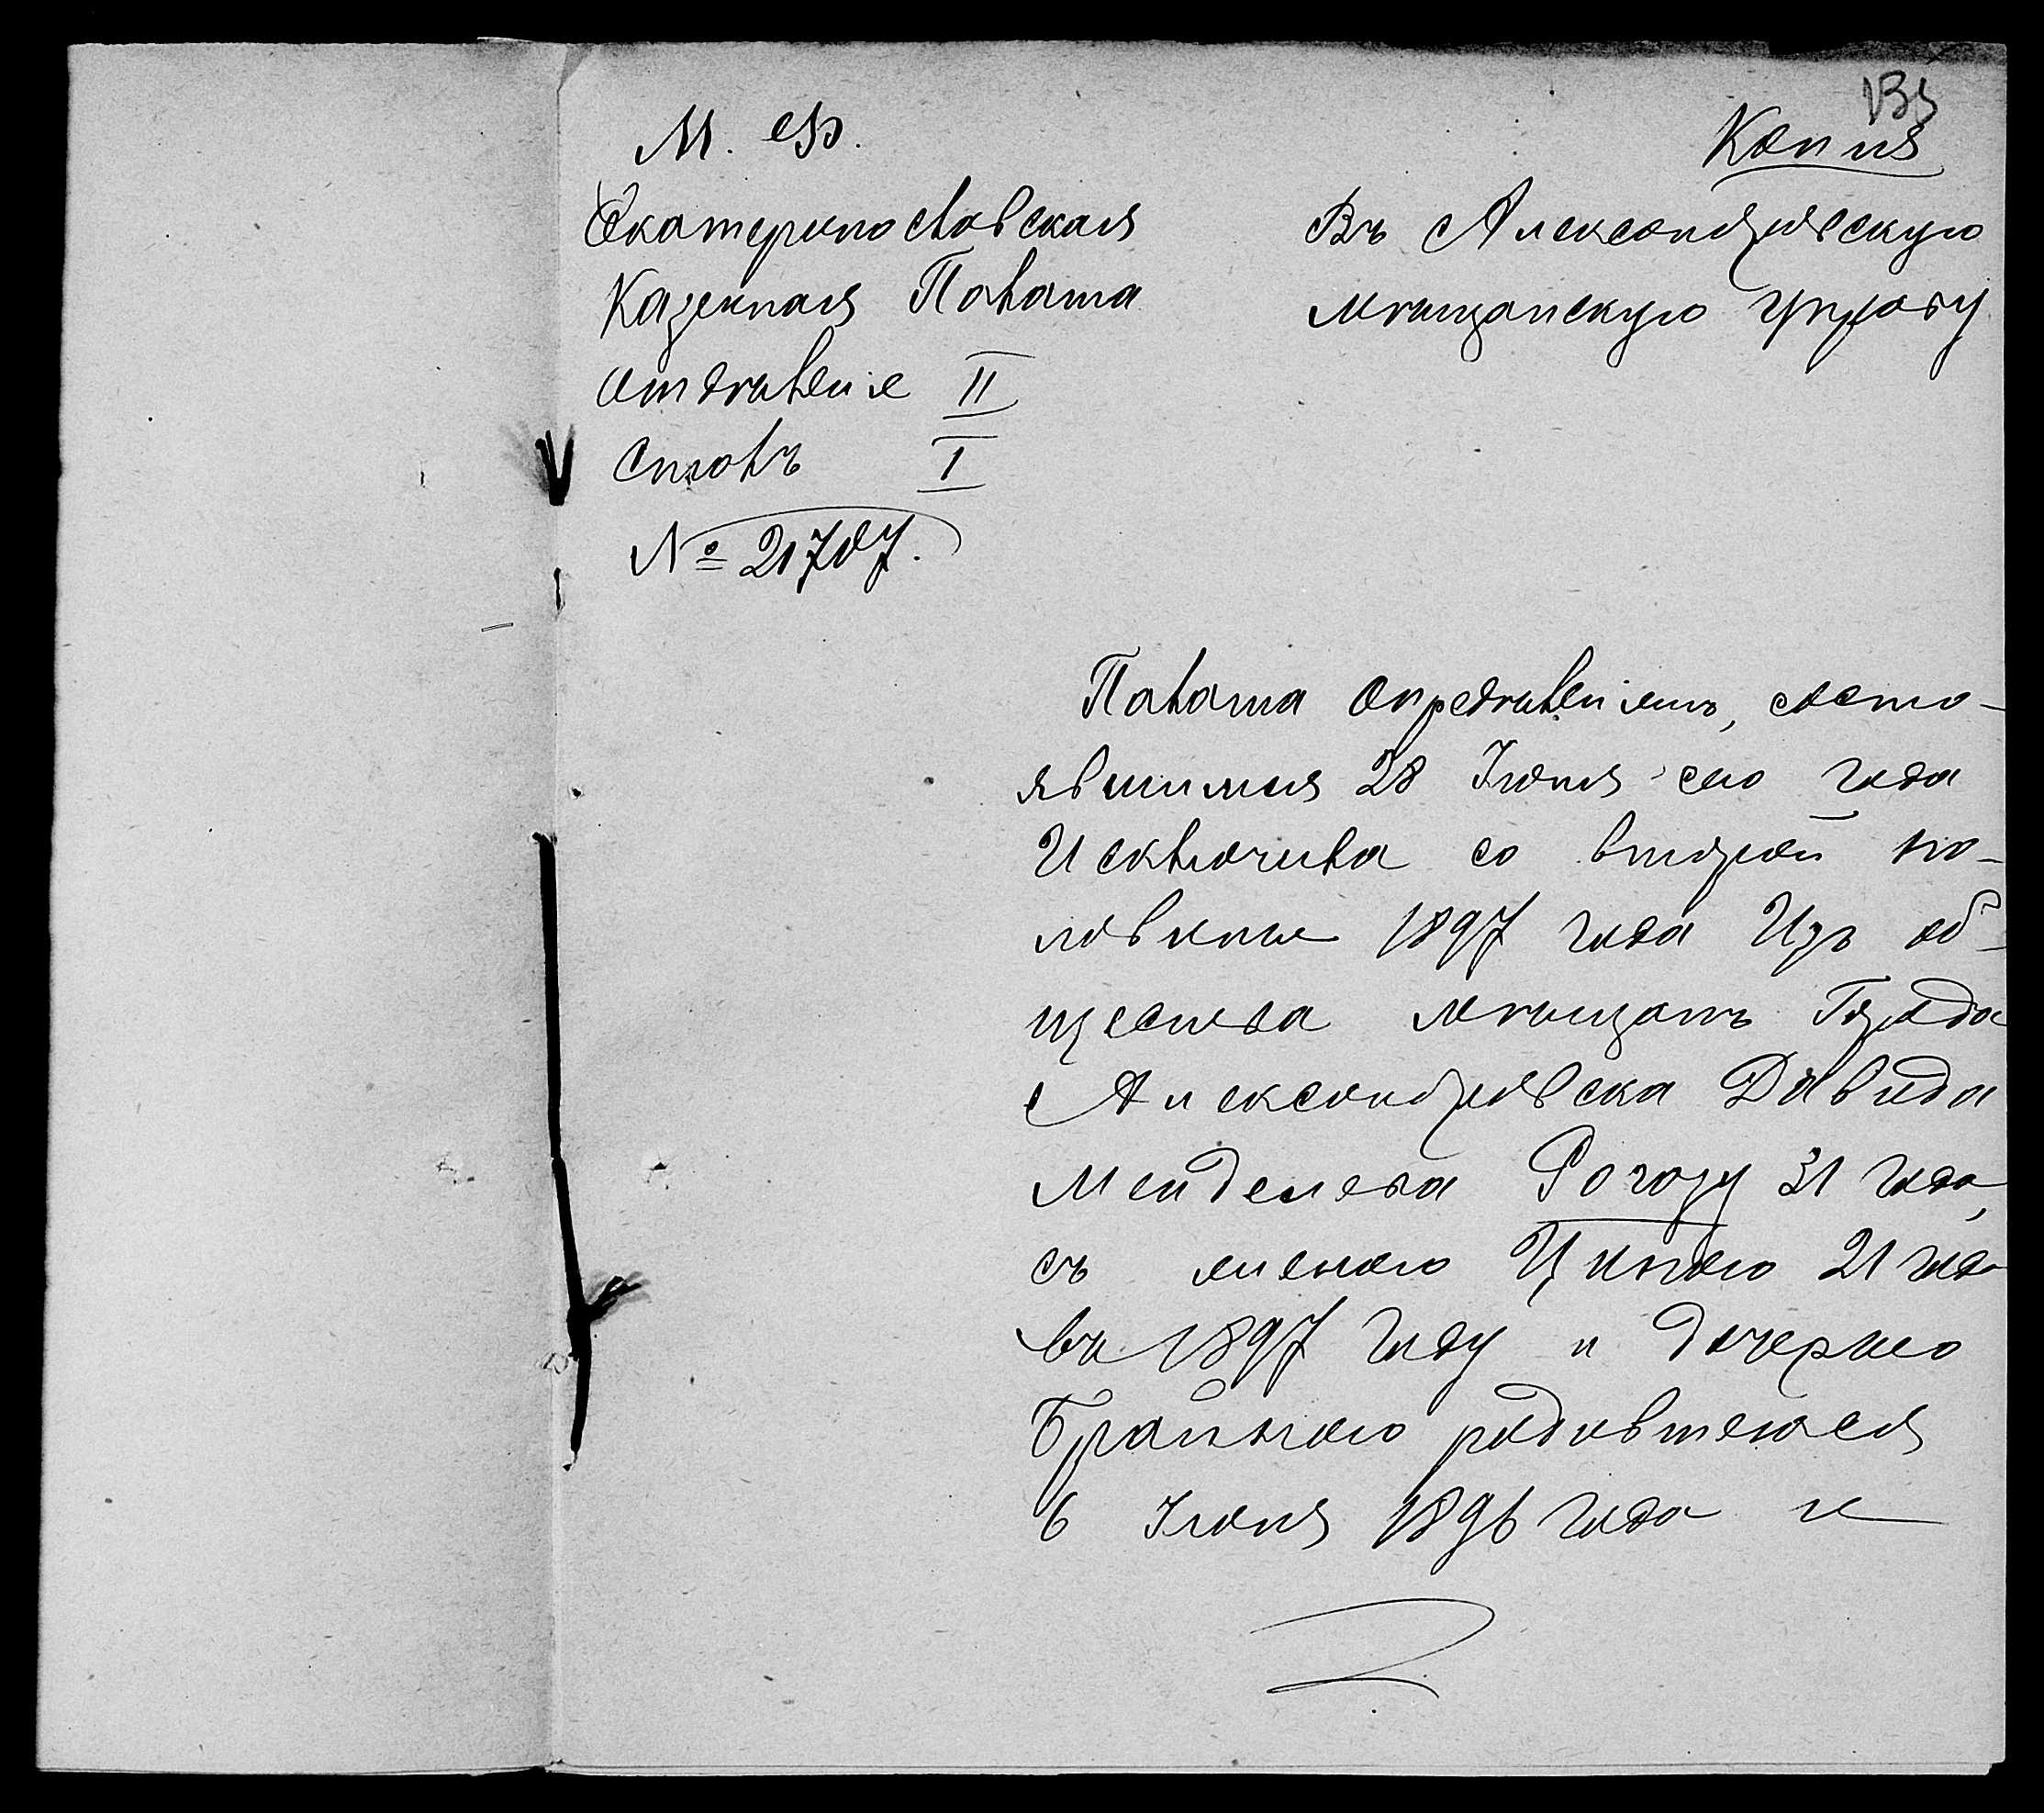 135
Копия
М. Ф.
Екатеринославская
Казенная Палата
Отделенiе II
Столъ I
№ 21707.
Въ Александровскую
мѣщанскую управу
Палата опредѣленiемъ, состо-
явшимся 28 Iюня сего года
Исключила со второй по-
ловины 1897 года Изъ об-
щества мѣщанъ Города
Александровска Давида
Менделева Рогозу 31 года,
съ женою Ципою 21 года
въ 1897 году и дочерью
Брайною родившеюся
6 Iюня 1896 года и